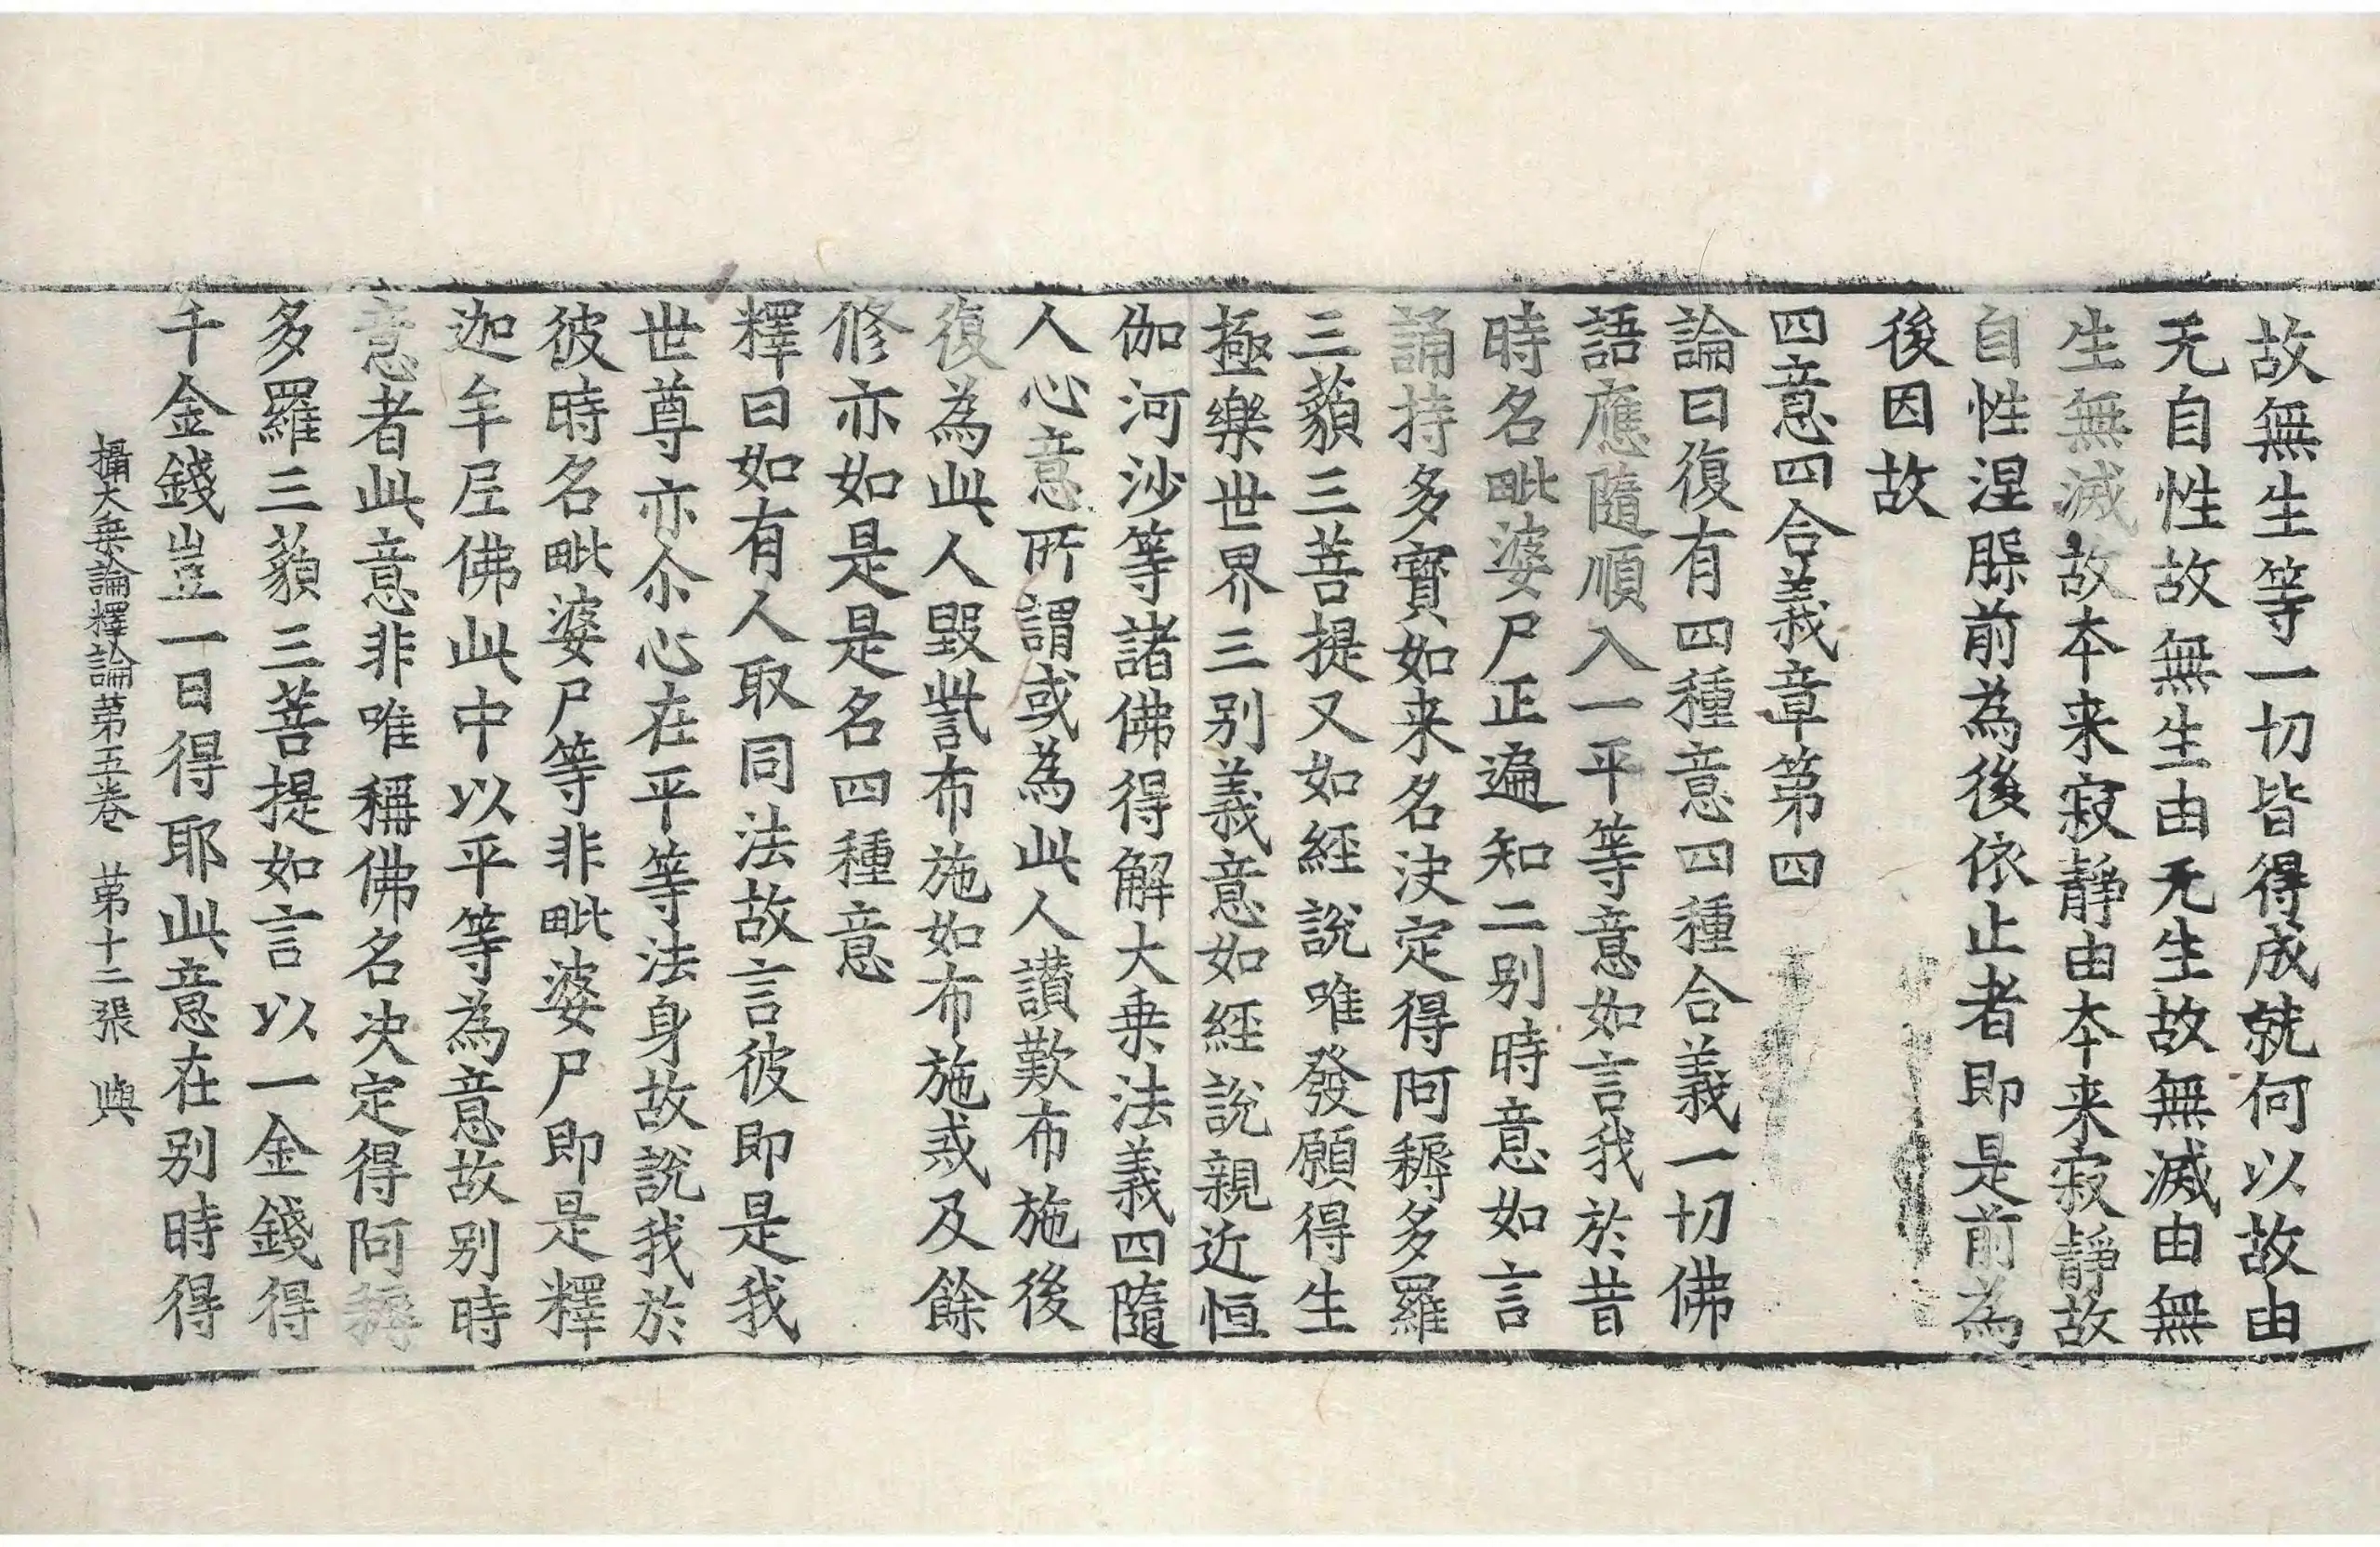 故無生等一切皆得成就何以故由
无自性故無生由无生故無滅由無
生無滅故本来寂靜由本来寂靜故
自性涅槃前為後依止者即是前為
後因故
四意四合義章第四
論曰復有四種意四種合義一切佛
語應隨順入一平等意如言我於昔
時名毗婆尸正遍知二别時意如言
誦持多寶如来名决定得阿耨多羅
三藐三菩提又如經說唯發願得生
極樂世界三别義意如經說親近恒
伽河沙等諸佛得解大乗法義四隨
人心意所謂或為此人讃歎布施後
復為此人毀訾布施如布施戒及餘
修亦如是是名四種意
釋曰如有人取同法故言彼即是我
世尊亦尒心在平等法身故說我於
彼時名毗婆尸等非毗婆尸即是釋
迦牟𡰱佛此中以平等為意故别時
意者此意非唯稱佛名决定得阿耨
多羅三藐三菩提如言以一金錢得
千金錢豈一日得耶此意在别時得
攝大乗論釋論第五卷 第十二張 與